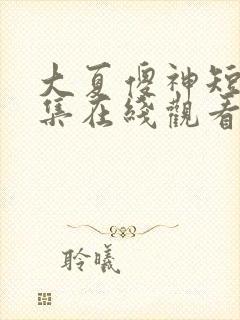 大夏傻神短
集在綫觀看
聆曦